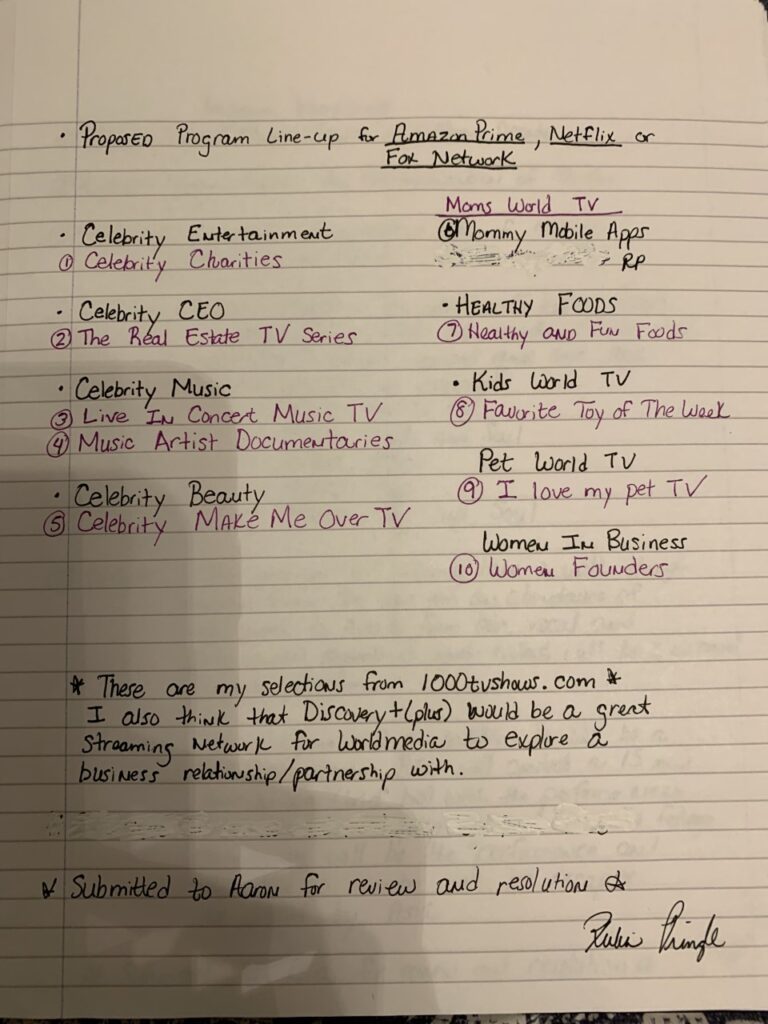 • Proposed Program Line-up for Amazon Prime, Netflix or
Fox Network
• Celebrity Entertainment
① Celebrity Charities
• Celebrity CEO
② The Real Estate TV Series
• Celebrity Music
③ Live In Concert Music TV
④ Music Artist Documentaries
• Celebrity Beauty
⑤ Celebrity Make Me Over TV
Moms World TV
⑥ Mommy Mobile Apps
RP
• Healthy Foods
⑦ Healthy and Fun Foods
• Kids World TV
⑧ Favorite Toy of The Week
Pet World TV
⑨ I love my pet TV
Women In Business
⑩ Women Founders
* These are my selections from 1000tvshows.com *
I also think that Discovery+(plus) would be a great
Streaming Network for Worldmedia to explore a
business relationship/partnership with.
* Submitted to Aaron for review and resolution *
Pringle